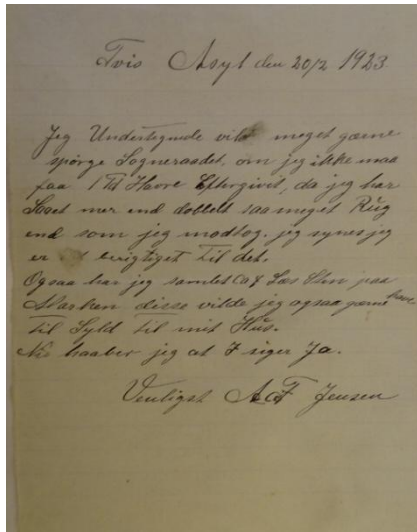 Tvis Asyl den 20/2 1923
Jeg Undertegnede vilde meget gærne
spørge Sogneraadet, om jeg ikke maa
faa 1 Td Havre Eftergivet, da jeg har
Saaet mer end dobbelt saa meget Rug
end som jeg modtog. jeg synes jeg
er berigtiget til det.
Ogsaa har jeg samlet Ca 8 Læs Sten paa
Marken disse vilde jeg ogsaa gærne have
til Syld til mit Hus.
Nu haaber jeg at I siger Ja.
Venligst A. F Jensen